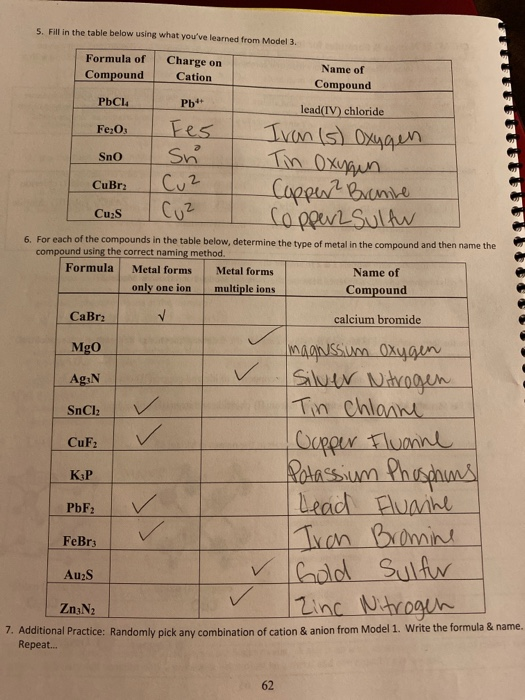 5. Fill in the table below using what you've learned from Model 3.
Formula of Compound Charge on Cation Name of Compound
PbCl₄ Pb⁴⁺ lead(IV) chloride
Fe₂O₃ Fe5 Iron (5) Oxygen
SnO Sn Tin Oxygen
CuBr₂ Cu2 Copper² Bromine
Cu₂S Cu2 Copper2 Sulfur
6. For each of the compounds in the table below, determine the type of metal in the compound and then name the
compound using the correct naming method.
Formula Metal forms only one ion Metal forms multiple ions Name of Compound
CaBr₂ √ calcium bromide
MgO ✓ magnssium oxygen
Ag₃N ✓ Silver Nitrogen
SnCl₂ ✓ Tin Chlorine
CuF₂ ✓ Copper Fluorine
K₃P Potassium Phosphorus
PbF₂ ✓ Lead Fluorine
FeBr₃ ✓ Iron Bromine
Au₂S ✓ Gold Sulfur
Zn₃N₂ ✓ Zinc Nitrogen
7. Additional Practice: Randomly pick any combination of cation & anion from Model 1. Write the formula & name.
Repeat...
62